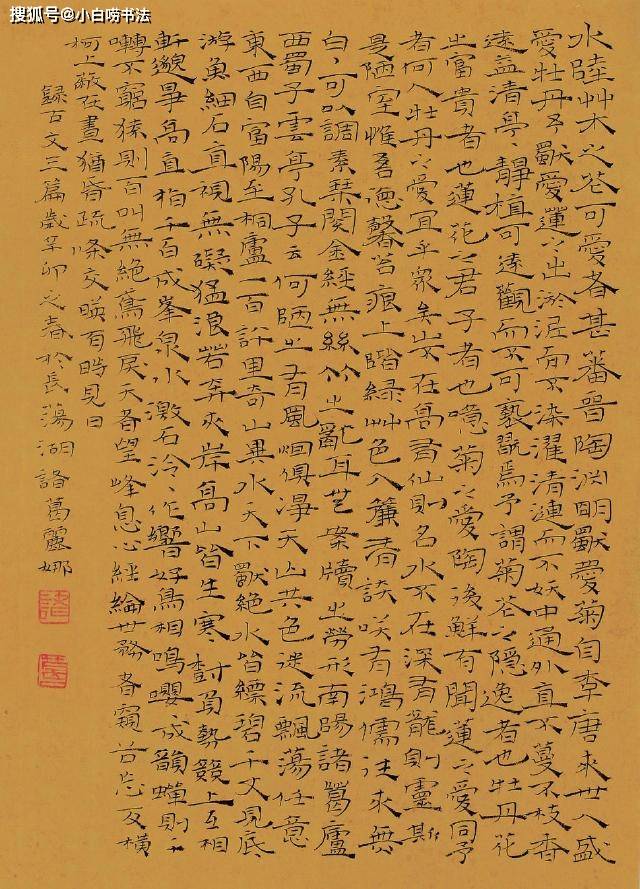 搜狐号@小白唠书法
水陸艸木之花可愛者甚蕃晉陶淵明獨愛菊自李唐来世人盛
愛牡丹予獨愛蓮之出淤泥而不染濯清漣而不妖中通外直不蔓不枝香
遠益清亭々靜植可遠觀而不可褻翫焉予謂菊花之隱逸者也牡丹花
之富貴者也蓮花之君子者也噫菊之愛陶後鮮有聞蓮之愛同予
者何人牡丹之愛宜乎衆矣山不在高有仙則名水不在深有龍則靈斯
是陋室惟吾德馨苔痕上階綠艸色入簾青談咲有鴻儒往来無
白丁可以調素琴閱金經無絲竹之亂耳無案牘之勞形南陽諸葛廬
西蜀子雲亭孔子云何陋之有風烟俱淨天山共色從流飄蕩任意
東西自富陽至桐廬一百許里奇山異水天下獨絕水皆縹碧千丈見底
游魚細石直視無礙猛浪若奔夾岸高山皆生寒樹負勢競上互相
軒邈爭高直指千百成峯泉水激石泠々作響好鳥相鳴嚶々成韻蟬則千
囀不窮猿則百叫無絕鳶飛戾天者望峰息心經綸世務者窺谷忘反橫
柯上蔽在晝猶昏疏條交映有時見日
錄古文三篇歲辛卯之春於長蕩湖諸葛麗娜